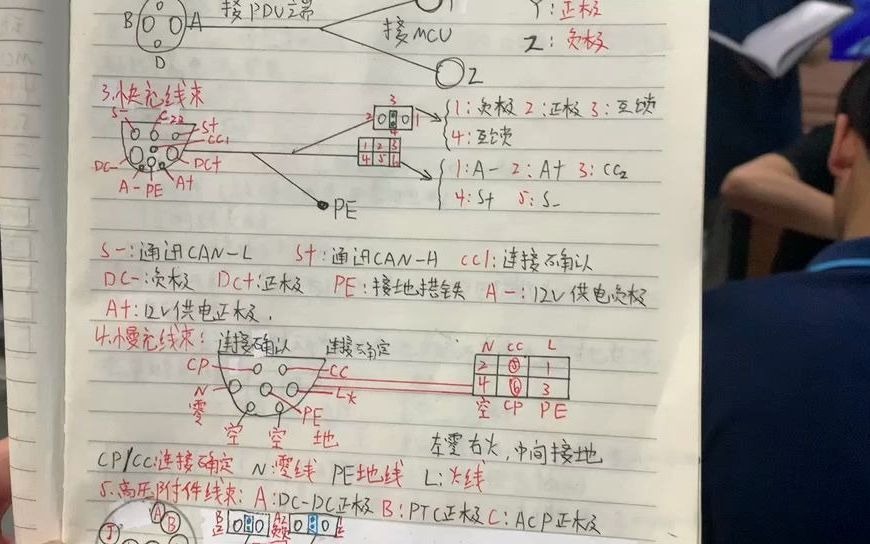 接PDU端
B A
D
接MCU
Y:正极
Z:负极
Z
3.快充线束
S- CC2 S+
CC1
DC- DC+
A- PE A+
3
2 1
4
1 2 3
4 5 6
PE
1:负极 2:正极 3:互锁
4:互锁
1:A- 2:A+ 3:CC2
4:S+ 5:S-
S-:通讯CAN-L S+:通讯CAN-H CC1:连接确认
DC-:负极 DC+:正极 PE:接地搭铁 A-:12V供电负极
A+:12V供电正极.
4.慢充线束:
连接确认 连接确定
CP CC
N L
零 PE
空 空 地
N CC L
2 5 1
4 6 3
空 CP PE
左零右火,中间接地
CP/CC:连接确定 N:零线 PE地线 L:火线
5.高压附件线束: A:DC-DC正极 B:PTC正极 C:ACP正极
A
B